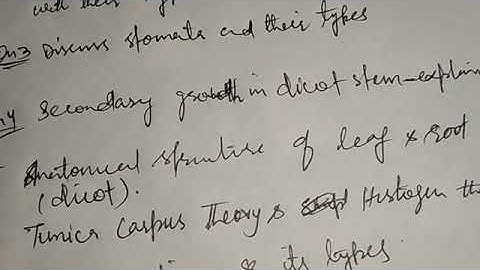 with their
Qn3 Discuss stomata and their types
Secondary growth in dicot stem-explain
Anatomical structure of leaf & root
(dicot).
Tunica Carpus Theory & Histogen th
& its types.